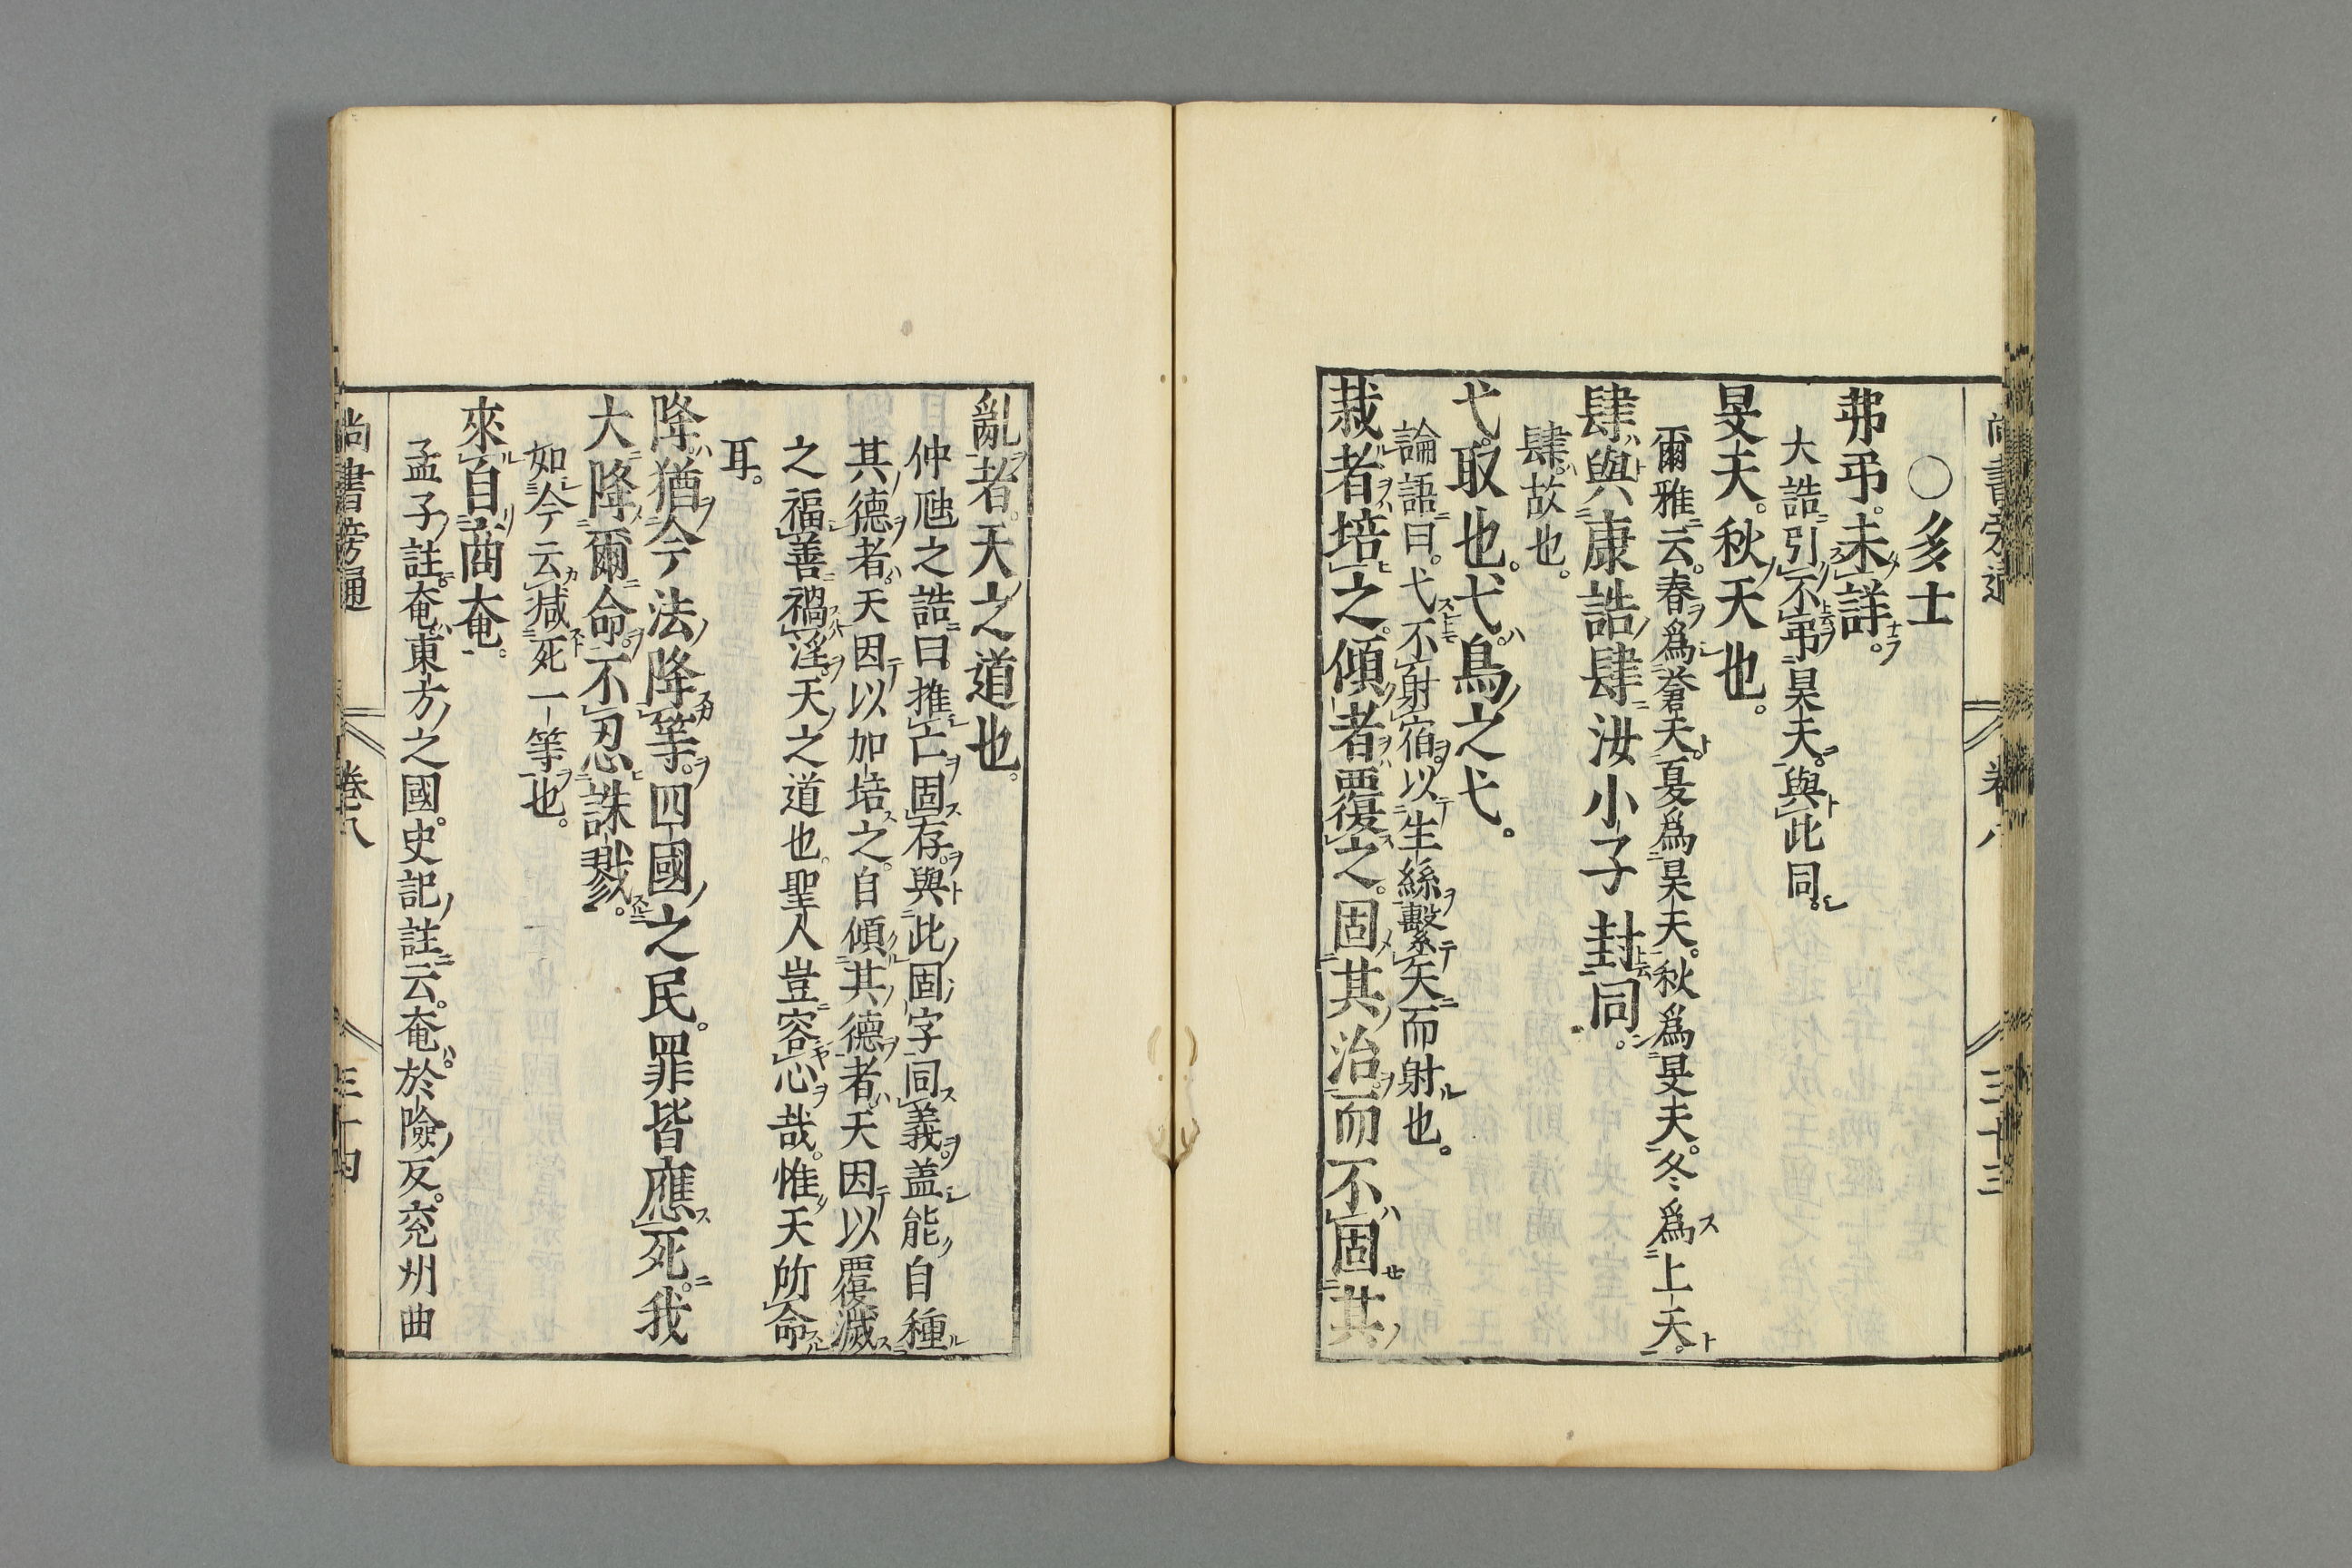 尚書旁通　卷八　三十三
○多士
弗弔。未詳。
大誥引不弔昊天。與此同。
旻天。秋天也。
爾雅云。春爲蒼天。夏爲昊天。秋爲旻天。冬爲上天。
肆與康誥肆汝小子封同。
肆。故也。
弋取也。弋。鳥之弋。
論語曰。弋不射宿。以生絲繫矢而射也。
栽者培之。傾者覆之。固其治而不固其
亂者。天之道也。
仲虺之誥曰。推亡固存。與此固字同義。蓋能自種
其德者。天因以加培之。自傾其德者。天因以覆滅
之福善禍淫。天之道也。聖人豈容心哉。惟天所命
耳。
降猶今法降等。四國之民。罪皆應死。我
大降爾命。不忍誅戮。
如今云減死一等也。
來自商奄。
孟子註。奄東方之國。史記註云。奄。於險反。兖州曲
尚書旁通　卷八　三十四